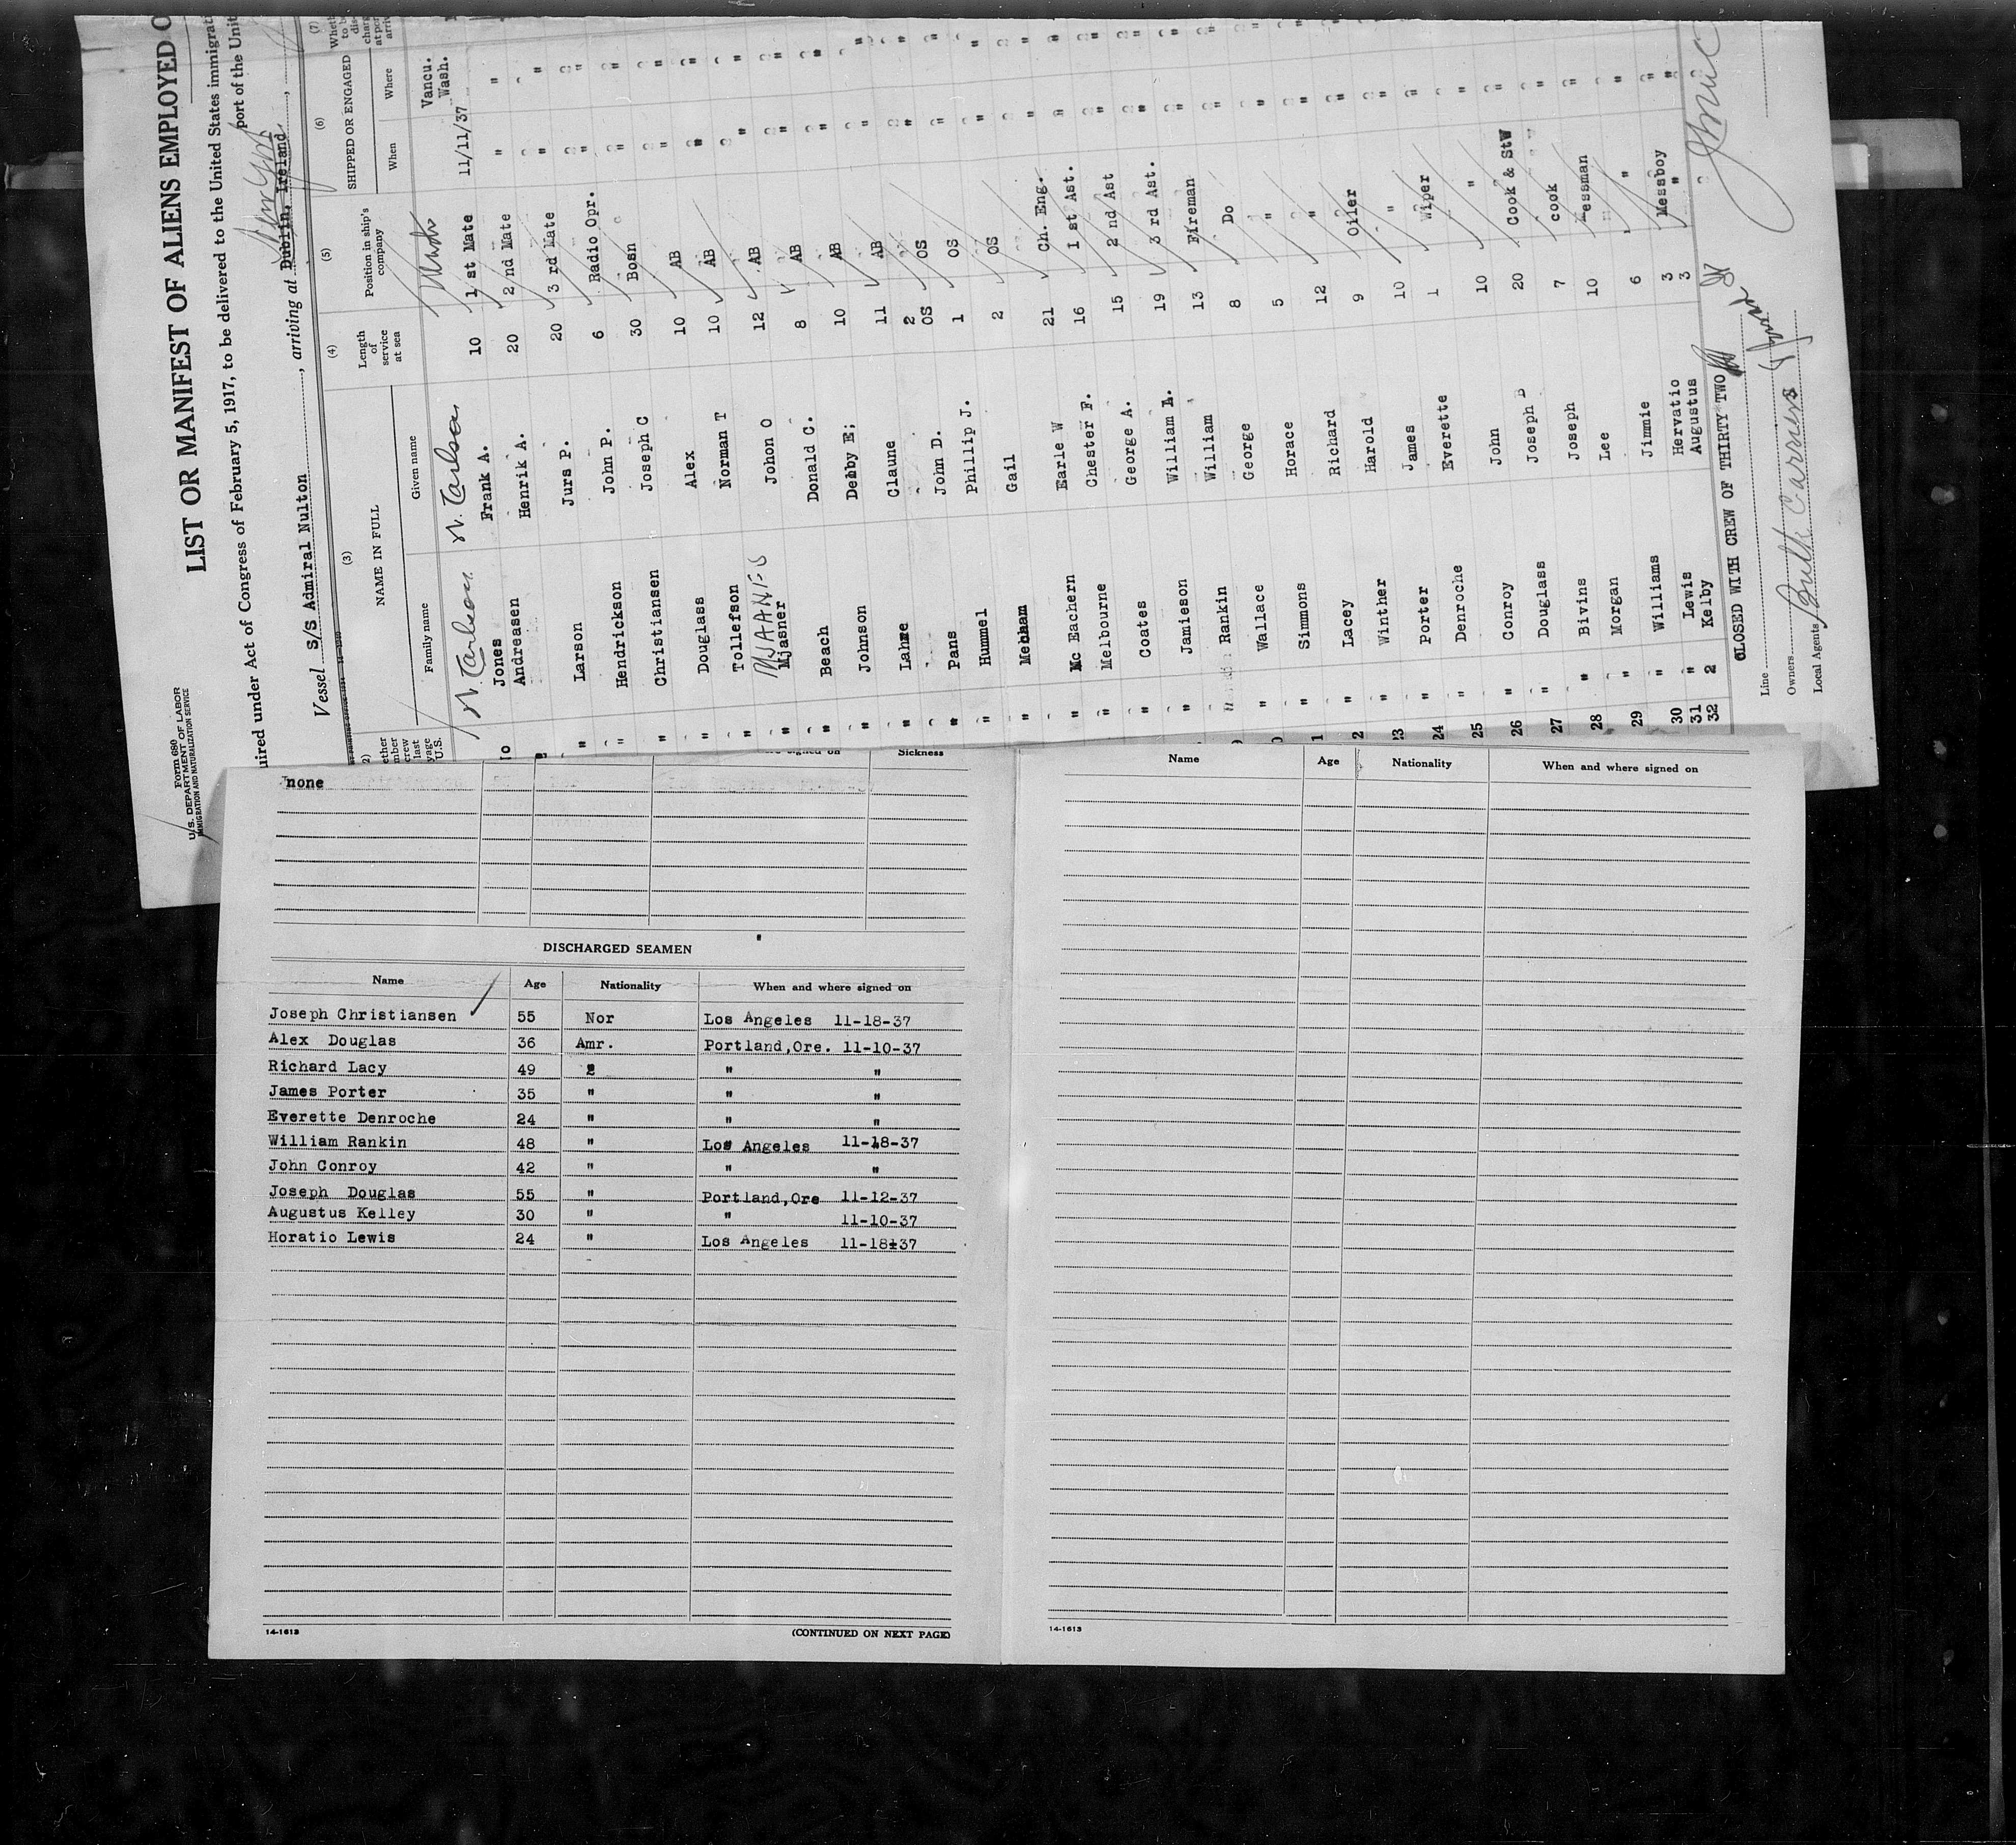 Form 680
U. S. DEPARTMENT OF LABOR
IMMIGRATION AND NATURALIZATION SERVICE
LIST OR MANIFEST OF ALIENS EMPLOYED O
uired under Act of Congress of February 5, 1917, to be delivered to the United States immigrat
port of the Unit
Vessel S/S Admiral Nulton, arriving at Dublin, Ireland
New York
(3) (4) (5) (6) (7)
NAME IN FULL
Family name Given name
Length of service at sea
Position in ship's company
SHIPPED OR ENGAGED
When Where
N. Carlson N. Carlson Master
Jones Frank A. 10 1 st Mate 11/11/37 Vancu. Wash.
Andreasen Henrik A. 20 2 nd Mate " "
Larson Jurs P. 20 3 rd Mate " "
Hendrickson John P. 6 Radio Opr. " "
Christiansen Joseph C 30 Bosn " "
Douglass Alex 10 AB " "
Tollefson Norman T 10 AB " "
Mjasner Johon O 12 AB " "
Beach Donald C. 8 AB " "
Johnson Debby E; 10 AB " "
Lahme Claune 11 AB " "
2 OS
Pans John D. OS OS " "
Hummel Phillip J. 1 OS " "
Mecham Gail 2 " "
Mc Eachern Earle W 21 Ch. Eng. " "
Melbourne Chester F. 16 1 st Ast. " "
Coates George A. 15 2 nd Ast " "
Jamieson William A. 19 3 rd Ast. " "
Rankin William 13 Fireman " "
Wallace George 8 Do " "
Simmons Horace 5 " " "
Lacey Richard 12 " " "
Winther Harold 9 Oiler " "
Porter James 10 " " "
24 Denroche Everette 1 Wiper " "
25 10 "
26 Conroy John 20 Cook & StW " "
27 Douglass Joseph 7 cook " "
28 Bivins Joseph 10 Messman " "
29 Morgan Lee " "
Williams Jimmie 6 " " "
30
31 " Lewis Hervatio 3 Messboy "
32 2 Kelby Augustus 3 " "
CLOSED WITH CREW OF THIRTY TWO
Line
Owners
Local Agents Bulk Carriers
none
Sickness
DISCHARGED SEAMEN
Name Age Nationality When and where signed on
Joseph Christiansen 55 Nor Los Angeles 11-18-37
Alex Douglas 36 Amr. Portland,Ore. 11-10-37
Richard Lacy 49 " " "
James Porter 35 " " "
Everette Denroche 24 " " "
William Rankin 48 " Los Angeles 11-18-37
John Conroy 42 " " "
Joseph Douglas 55 " Portland,Ore 11-12-37
Augustus Kelley 30 " " 11-10-37
Horatio Lewis 24 " Los Angeles 11-18-37
14-1613 (CONTINUED ON NEXT PAGE)
Name Age Nationality When and where signed on
14-1613